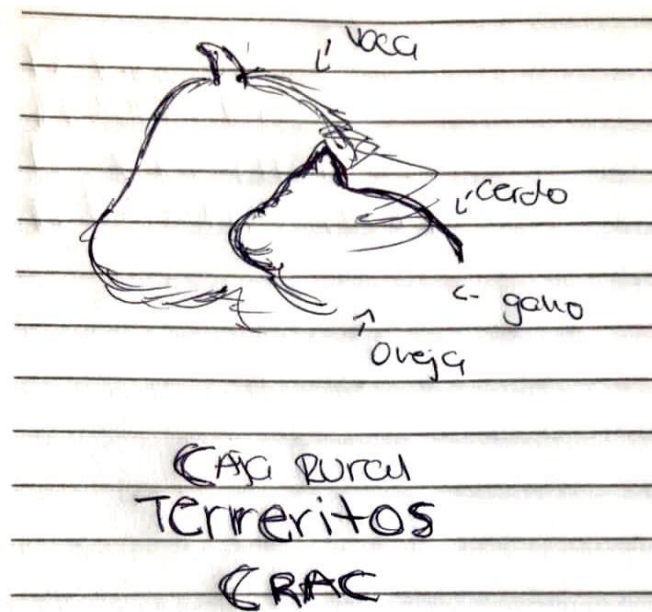 vaca
cerdo
gallo
Oveja
CAJA RURAL
Terreritos
CRAC